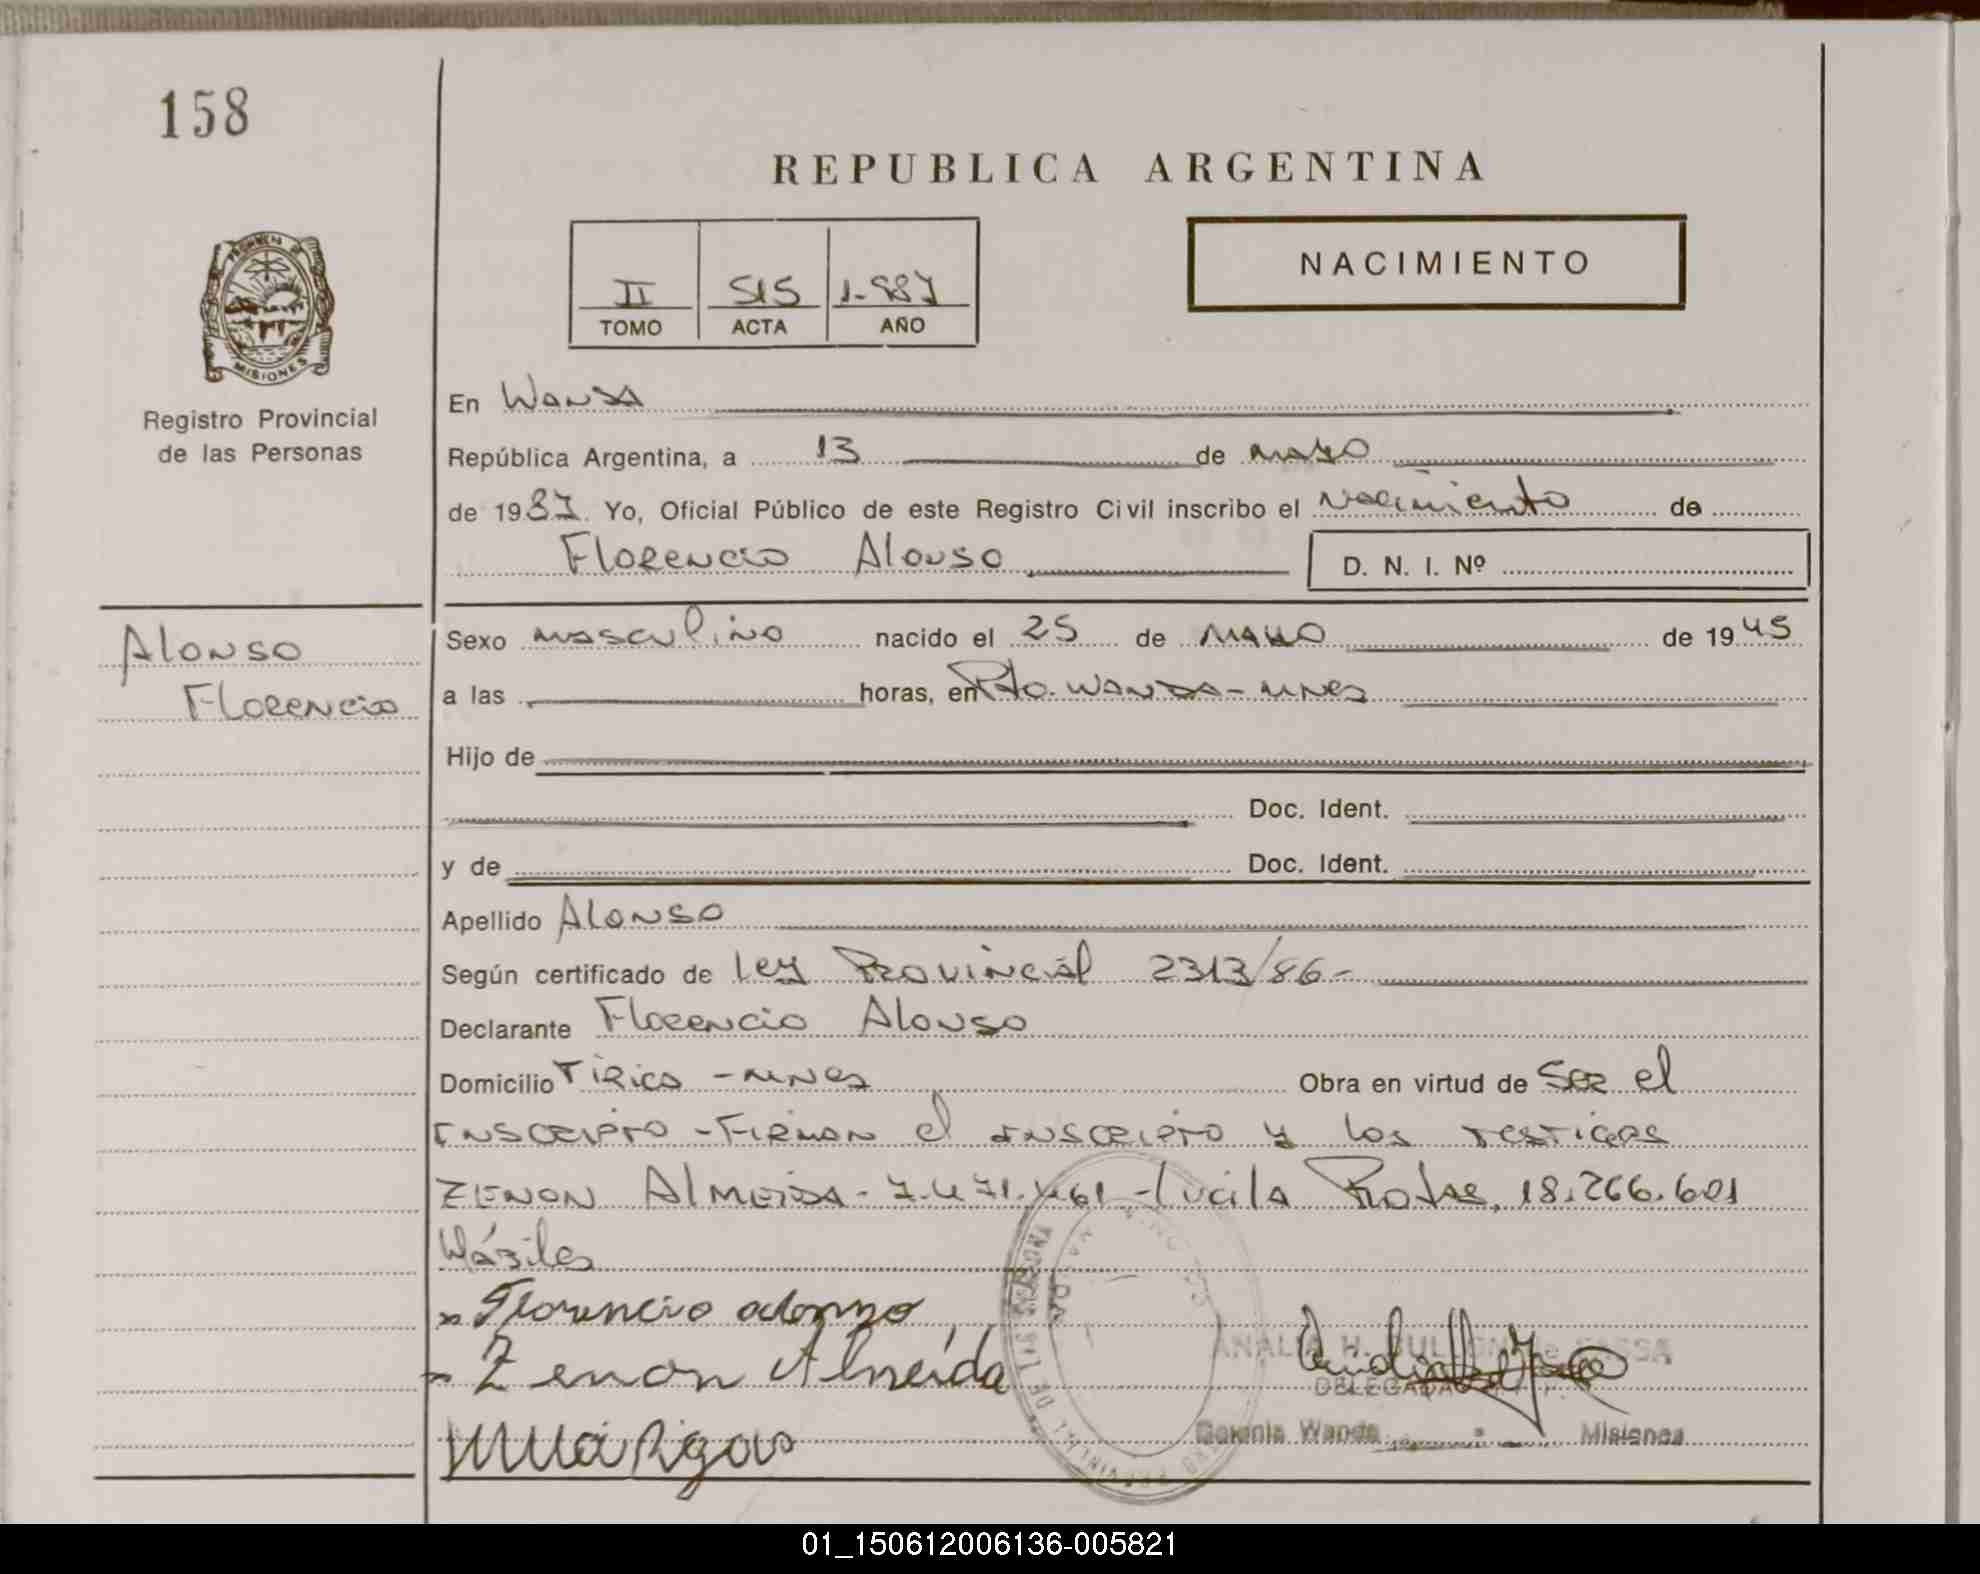 158
REPUBLICA ARGENTINA
II 515 1.987
TOMO ACTA AÑO
NACIMIENTO
PROVINCIA DE MISIONES
Registro Provincial
de las Personas
En Wanda
República Argentina, a 13 de mayo
de 1987. Yo, Oficial Público de este Registro Civil inscribo el Nacimiento de
Florencio Alonso
D. N. I. Nº
Alonso
Florencio
Sexo masculino nacido el 25 de mayo de 1945
a las horas, en Pto. Wanda - Mnes
Hijo de
Doc. Ident.
y de Doc. Ident.
Apellido Alonso
Según certificado de Ley Provincial 2313/86-
Declarante Florencio Alonso
Domicilio Tirica - Mnes Obra en virtud de Ser el
Inscripto - Firman el Inscripto y los testigos
Zenon Almeida - 7.471.461 - Lucila Rojas, 18.266.601
Hábiles
Florencio alonzo
Zenon Almeida
ANALIA H. de
DELEGADA
Colonia Wanda Misiones
01_150612006136-005821